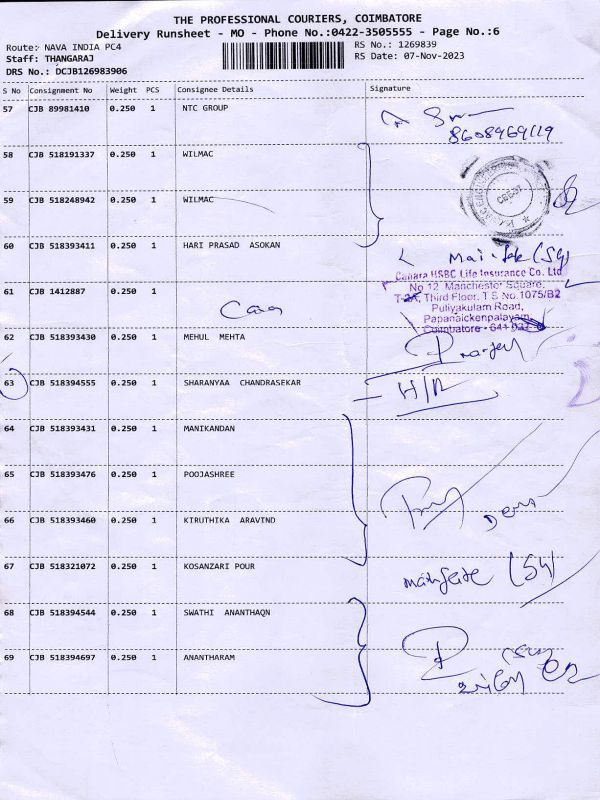 THE PROFESSIONAL COURIERS, COIMBATORE
Delivery Runsheet - MO - Phone No.:0422-3505555 - Page No.:6
Route: NAVA INDIA PC4
RS No.: 1269839
Staff: THANGARAJ
RS Date: 07-Nov-2023
DRS No.: DCJB126983906
S No Consignment No Weight PCS Consignee Details Signature
57 CJB 89981410 0.250 1 NTC GROUP
8608969119
58 CJB 518191337 0.250 1 WILMAC
59 CJB 518248942 0.250 1 WILMAC
60 CJB 518393411 0.250 1 HARI PRASAD ASOKAN
Canara HSBC Life Insurance Co. Ltd
61 CJB 1412887 0.250 1
No 12 Manchester Square,
Third Floor, T S No.1075/B2
Puliyakulam Road,
Papanaickenpalayam,
Coimbatore - 641 037
62 CJB 518393430 0.250 1 MEHUL MEHTA
63 CJB 518394555 0.250 1 SHARANYAA CHANDRASEKAR
64 CJB 518393431 0.250 1 MANIKANDAN
65 CJB 518393476 0.250 1 POOJASHREE
66 CJB 518393460 0.250 1 KIRUTHIKA ARAVIND
67 CJB 518321072 0.250 1 KOSANZARI POUR
68 CJB 518394544 0.250 1 SWATHI ANANTHAQN
69 CJB 518394697 0.250 1 ANANTHARAM